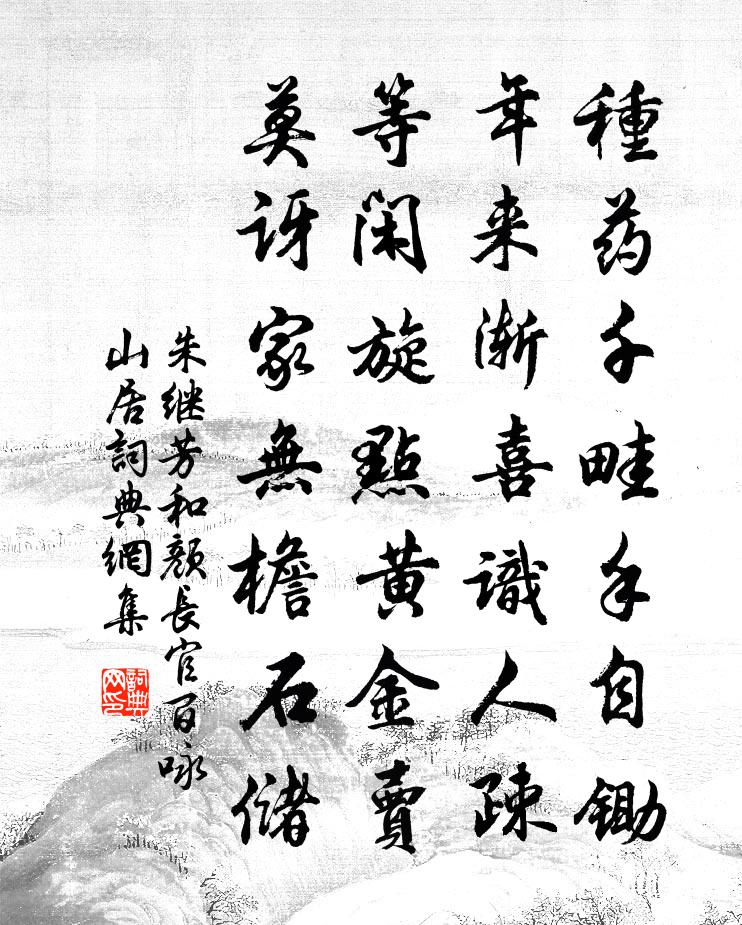 種药千畦手自鋤
年来渐喜識人疎
等闲旋點黄金賣
莫讶家無檐石儲
朱继芳和颜長官百咏
山居詞典網集
詞典网印